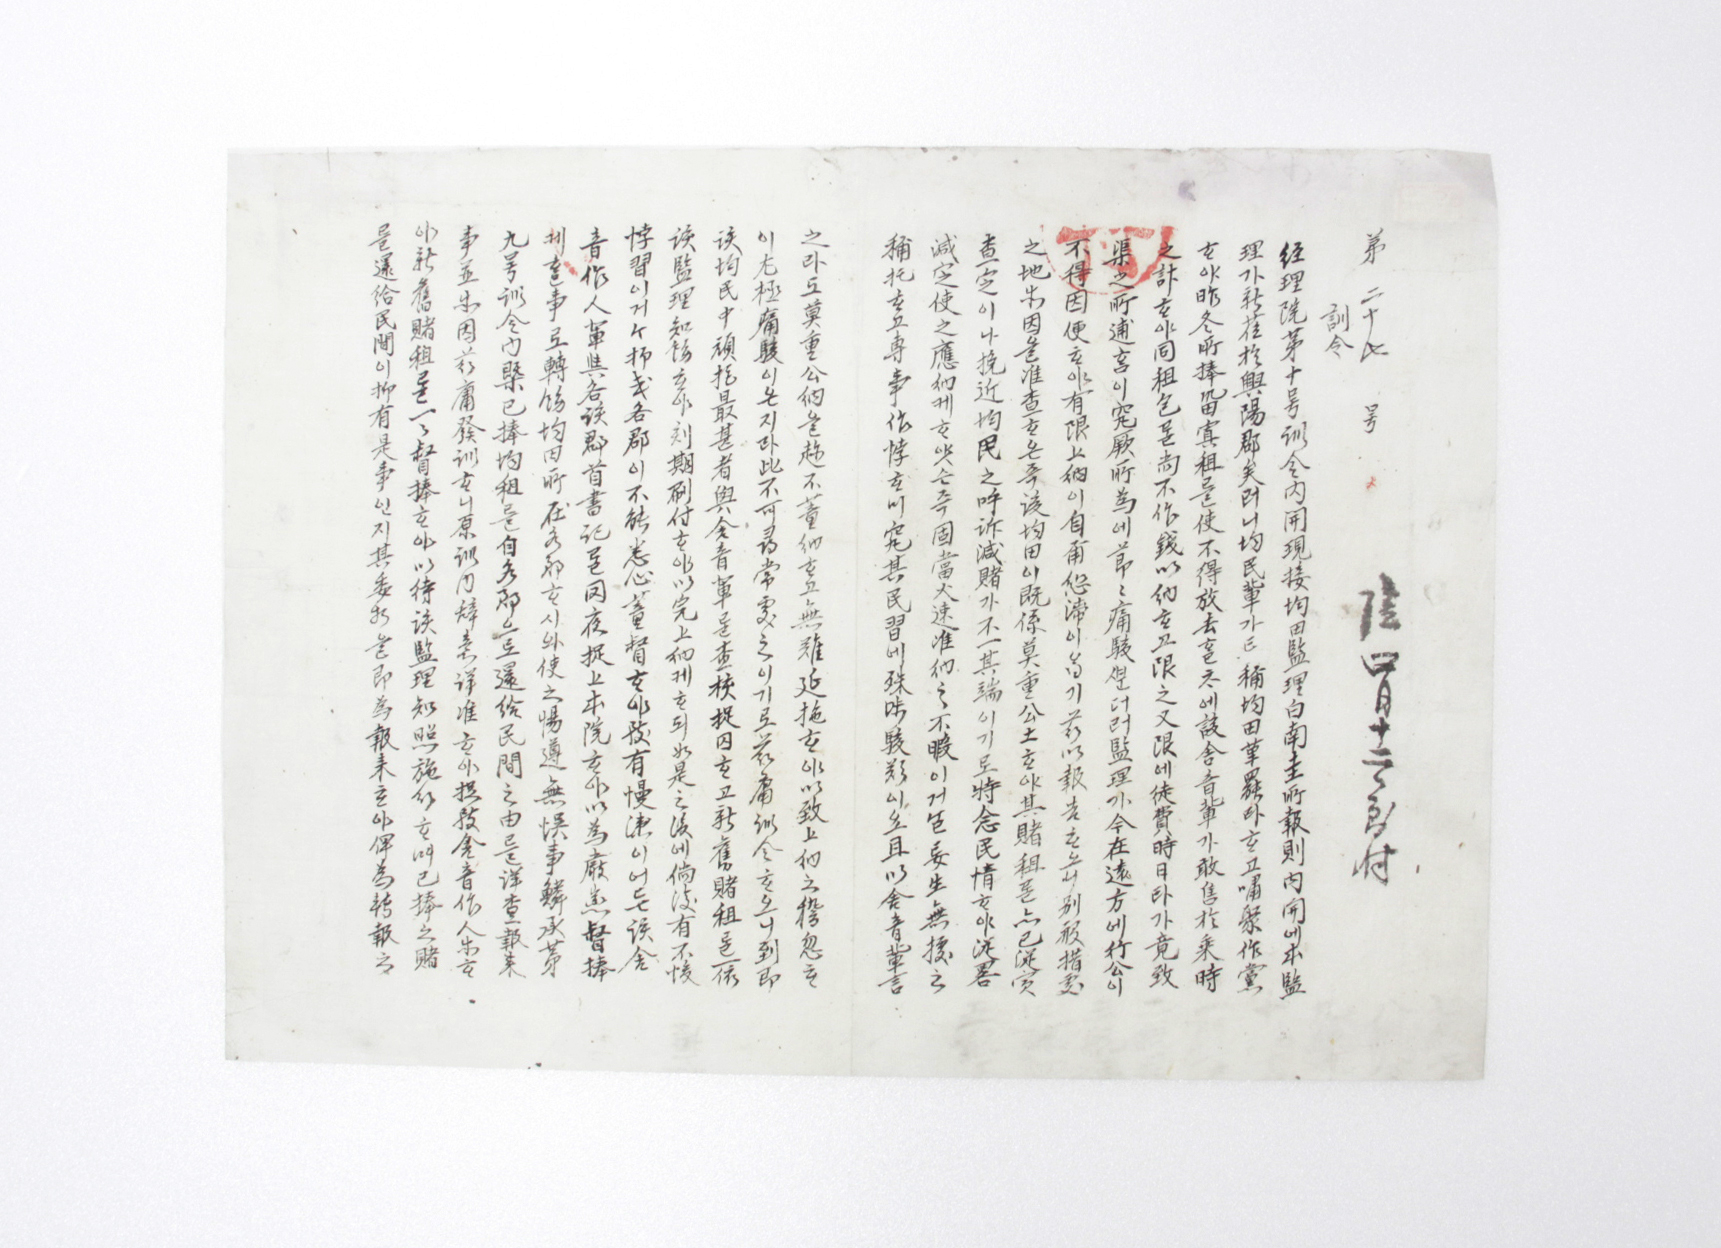 第二十七号
訓令
陰四月十二日 到付
経理院第十号訓令內開現接均田監理白南圭所報則內開에本監
理가新莅於興陽郡矣러니均民輩가已稱均田革罷라ᄒᆞ고嘯聚作黨
ᄒᆞ야昨冬所捧留寘租를使不得放去ᄒᆞᆯᄎᆞ에該舍音輩가敢售於乘時
之計ᄒᆞ야同租包를尚不作錢以納ᄒᆞ고限之又限에徒費時日타가竟致
渠之所逋ᄒᆞᆷ이究厥所為에節節痛駭ᄲᅮᆫ더러監理가今在遠方에行公이
不得因便ᄒᆞ야有限上納이自甬愆滯이ᄋᆞᆸ기玆以報告ᄒᆞ오니別般措處
之地ᄒᆞ을准查ᄒᆞ온즉該均田이既係莫重公土ᄒᆞ야其賭租를亦已從實
查定이나挽近均民之呼訴減賭가不一其端이기로特念民情ᄒᆞ야從畧
減定使之應納케ᄒᆞ얏슨즉固當火速准納之不暇이거ᄂᆞᆯ妄生無據之
稱托ᄒᆞ고專事作悖ᄒᆞ니究其民習에殊味駭歎이ᄋᆞᆸ고且以舍音輩言
之라도莫重公納을趁不董納ᄒᆞ고無難延拖ᄒᆞ야以致上納之愆忽ᄒᆞ
이尤極痛駭이온지라此不可尋常處之이기로玆庸訓令ᄒᆞ오니到即
該均民中頑拒最甚者與舍音輩를查核捉囚ᄒᆞ고新舊賭租를一依
該監理知飭ᄒᆞ야刻期刷付ᄒᆞ야以完上納케ᄒᆞ되如是之後에倘或有不悛
悖習이거나抑或各郡이不能悉心董督ᄒᆞ야致有慢湥이어든該舍
音作人輩與各該郡首書記를罔夜捉上本院ᄒᆞ야以為嚴懲督捧
케ᄒᆞᆯ事로轉飭均田所在各郡ᄒᆞ시와使之惕遵無悞事鱗承第
九号訓令內槩已捧均租를自各郡으로還給民間之由를詳查報来
事並ᄒᆞ因玆庸發訓ᄒᆞ니原訓內辭意詳准ᄒᆞ야捉致舍音作人ᄒᆞ
야新舊賭租를一一督捧ᄒᆞ야以待該監理知照施行ᄒᆞ며已捧之賭
를還給民間이抑有是事인지其委折을即為報来ᄒᆞ야俾為轉報之